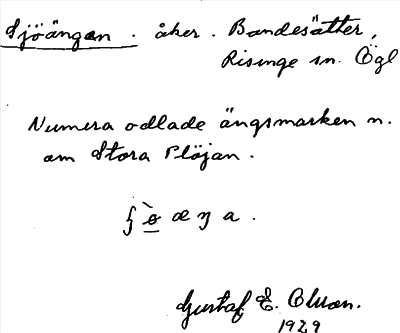 Sjöängen. åker. Bandesätter,
Risinge sn. Ögl
Numera odlade ängsmarken n.
om Stora Plöjan.
æ ŋ a.
Gustaf E. Olsson.
1929